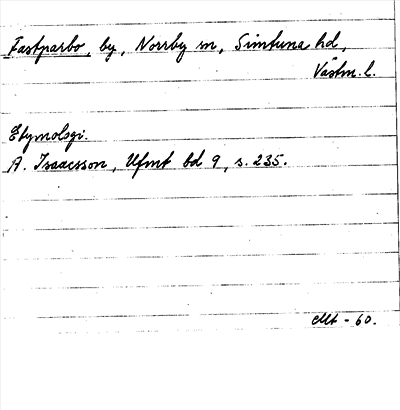 Fastparbo, by, Norrby sn, Simtuna hd,
Västm. l.
Etymologi.
A. Isaacsson, Ufmt bd 9, s. 235.
- 60.